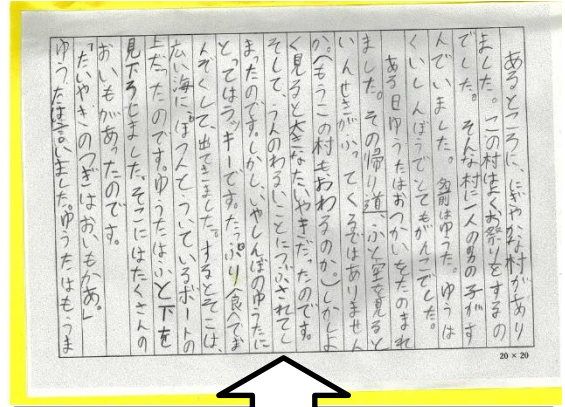 あるところに、にぎやかな村があり
ました。この村はよくお祭りをするの
でした。そんな村に一人の男の子がす
んでいました。名前はゆうた。ゆうは
くいしんぼうでとてもがんこでした。
ある日ゆうたはおつかいをたのまれ
ました。その帰り道、ふと空を見ると
いんせきがふってくるではありません
か。(もうこの村もおわるのか。)しかしよ
く見ると大きなたいやきだったのです。
そして、うんのわるいことにつぶされてし
まったのです。しかし、いやしんぼのゆうたに
とってはラッキーです。たっぷり食べてま
んぞくして、出てきました。するとそこは、
広い海に、ぽつんとういているボートの
上だったのです。ゆうたはふと下を
見下ろしました。そこにはたくさんの
おいもがあったのです。
「たいやきのつぎはおいもかあ。」
ゆうたは言いました。ゆうたはもうま
20×20